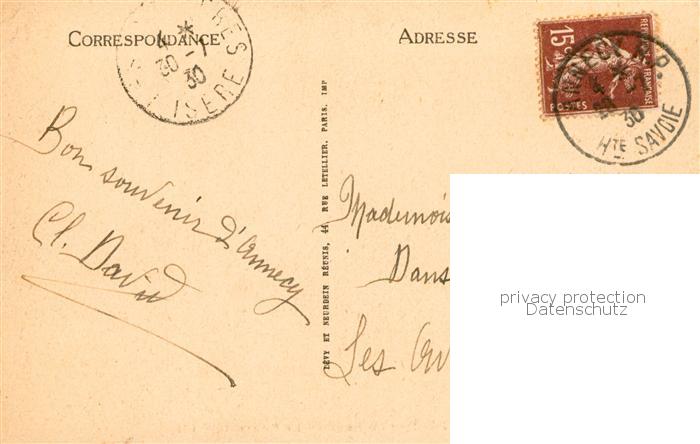 CORRESPONDANCE
ADRESSE
ISERE
4 -1
30
15c
POSTES
ANNECY R.P.
4 -1
30
HTE SAVOIE
Bon souvenir d'Annecy
Cl. David
LÉVY ET NEURDEIN RÉUNIS, 44, RUE LETELLIER, PARIS. IMP
Mademois
Dans
Les
privacy protection
Datenschutz